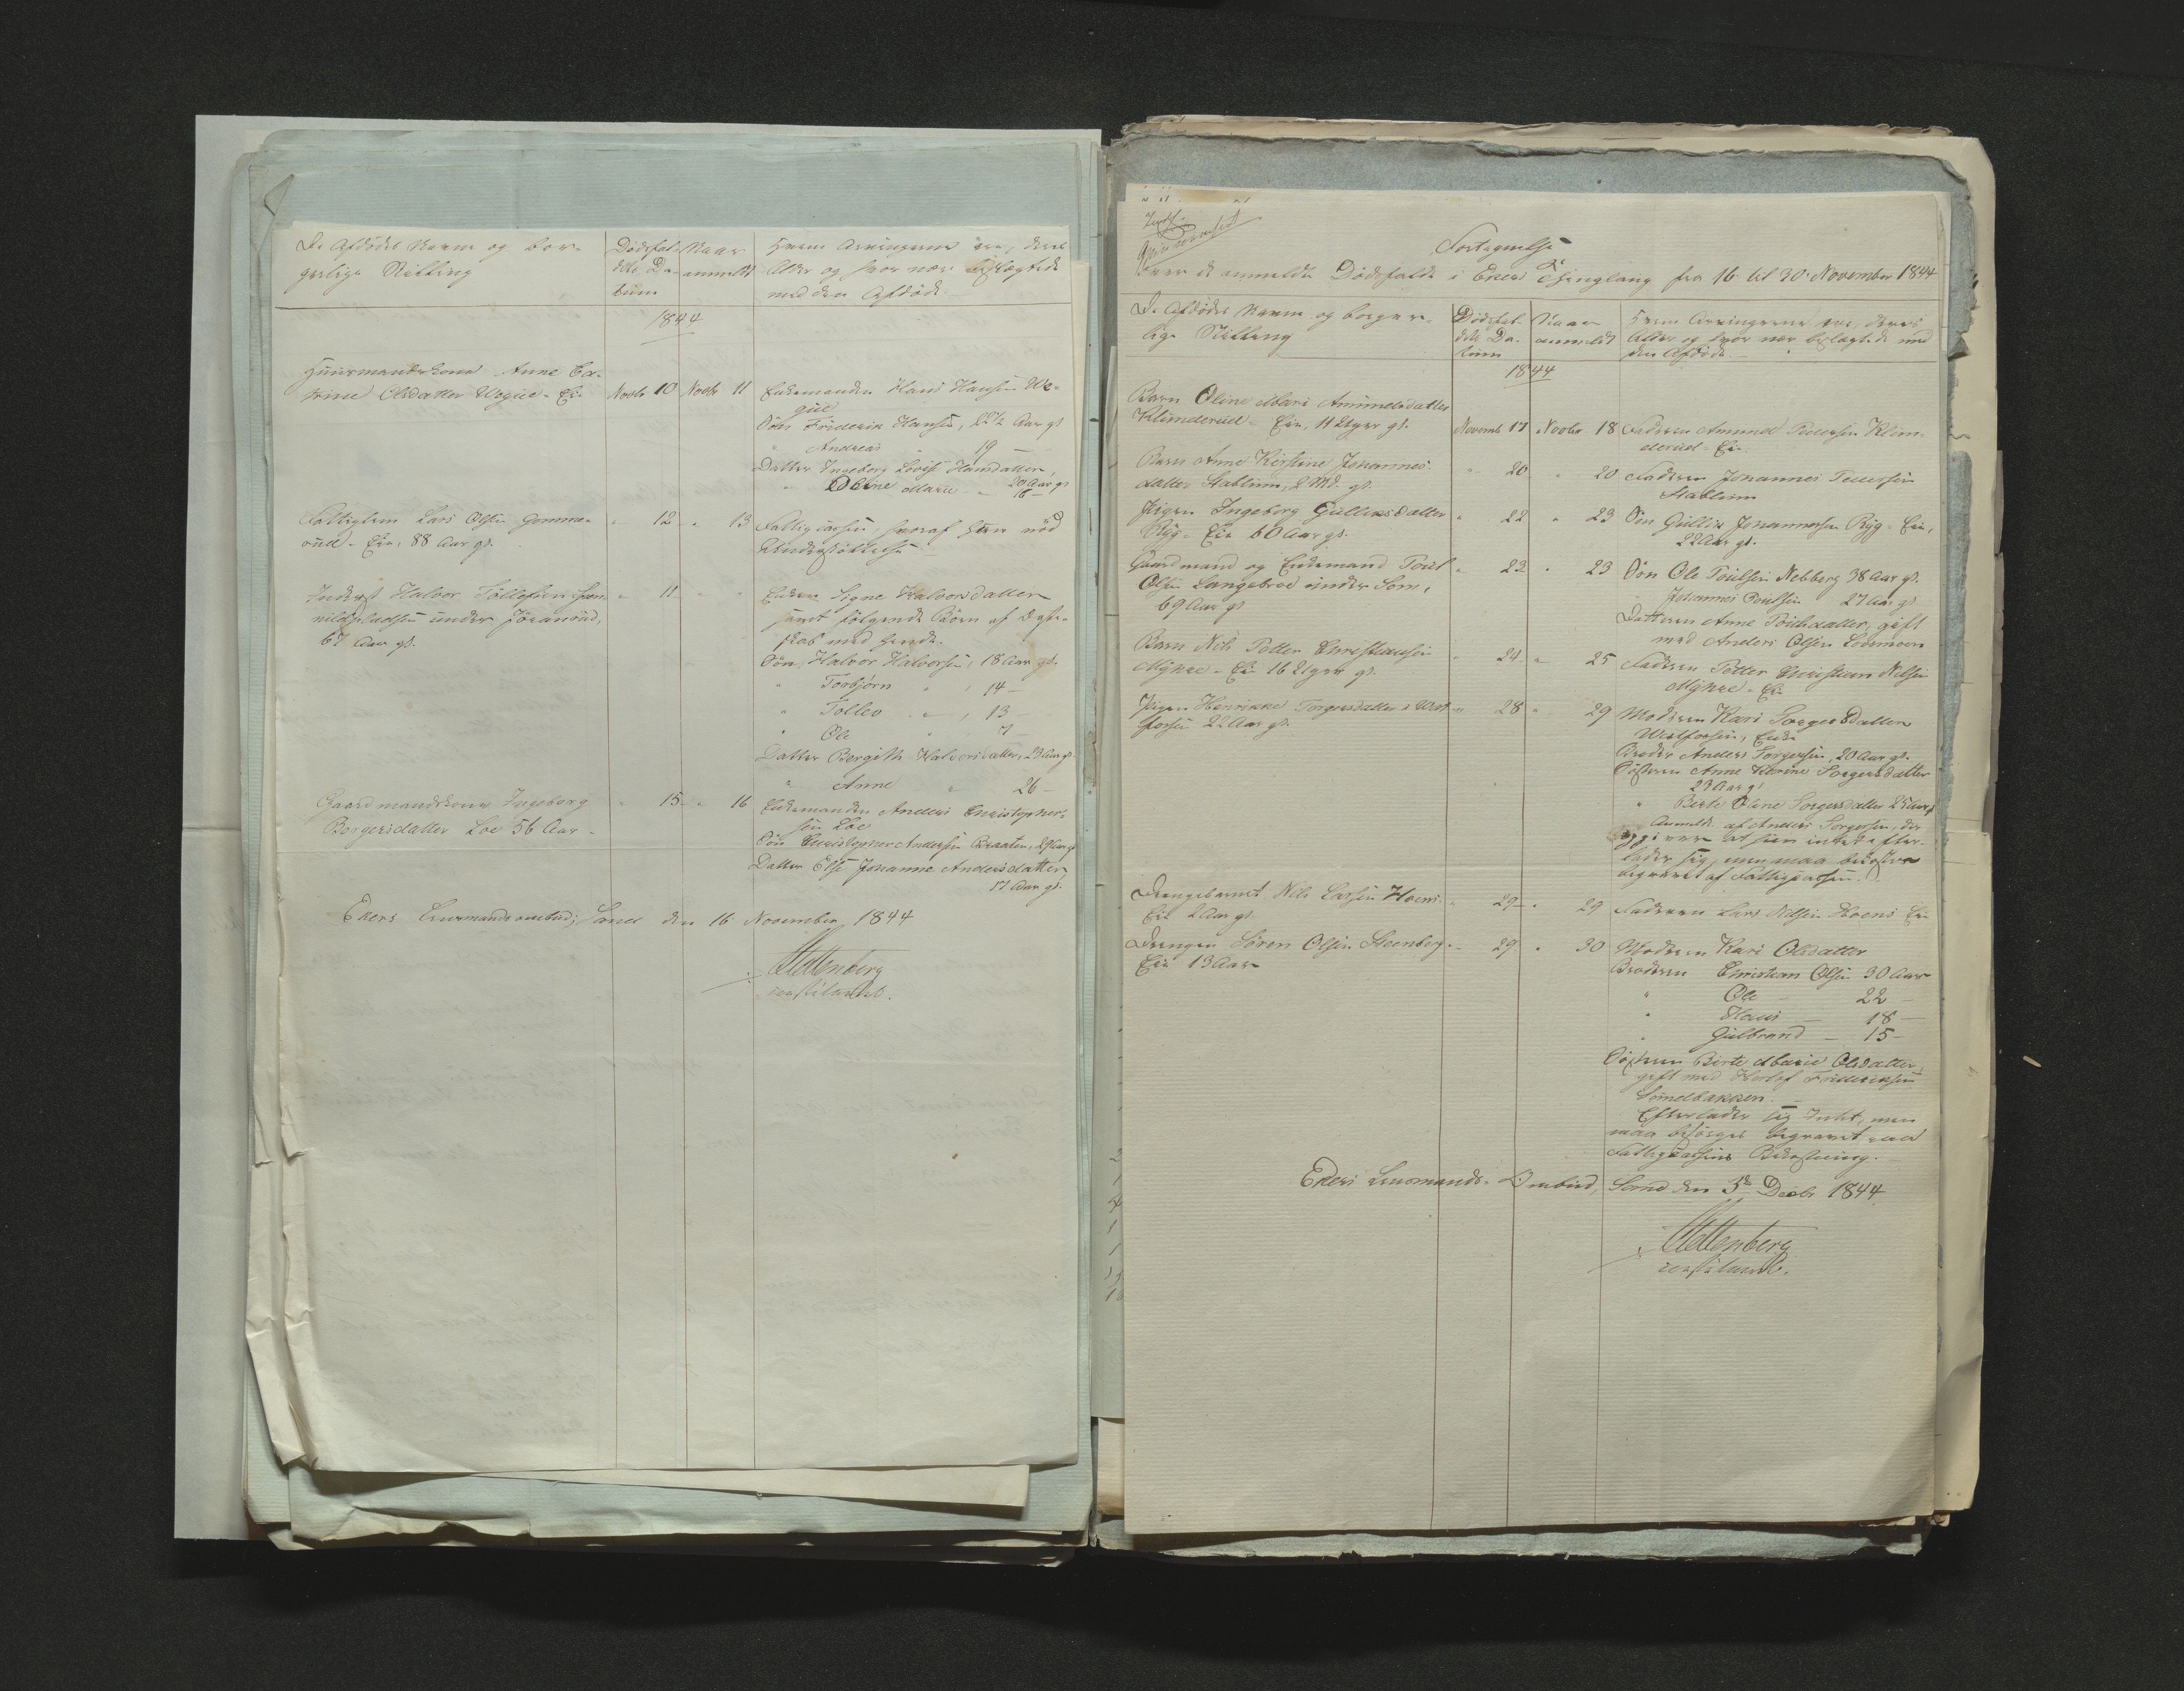 De Afdødes Navne og bor-
gerlige Stilling
Dødsfal-
dets Da-
tum
Naar
anmeldt
Hvem Arvingerne ere, deres
Alder og hvor nær beslægtede
med den Afdøde
1844
Huusmandskone Anne Ca-
trine Olsdatter Wegue - Eie
Novbr 10 Novbr 11
Enkemanden Hans Hansen We-
gue
Søn Friderik Hansen, 22½ Aar gl
" Andreas " 19 —
Datter Ingeborg Lovise Hansdatter,
20 Aar gl
" Oline Marie " 16 —
Fattiglem Lars Olsen Gomme-
rud - Eie, 88 Aar gl.
" 12 " 13
Fattigcassen, hvoraf han nød
Understøttelse
Inderst Halvor Tollefsen
under
67 Aar gl.
" 11 " "
Enken Signe Halvorsdatter
samt følgende Børn af Ægte-
skab med hende.
Søn, Halvor Halvorsen, 18 Aar gl.
" Torbjørn " , 14 —
" Tollev " , 13
" Ole " 7 —
Datter Bergith Halvorsdatter, 23 Aar gl
" Anne " 26 —
Gaardmandskone Ingeborg
Borgersdatter Loe 56 Aar -
" 15 " 16
Enkemanden Anders Christopher-
sen Loe
Søn Christopher Andersen Braaten, 29 Aar gl
Datter Else Johanne Andersdatter,
17 Aar gl.
Ekers Lensmandsombud, Sand den 16 November 1844
Stettenberg
constitueret.
Fortegnelse
over de anmeldte Dødsfalde i Ekers Thinglaug fra 16 til 30 November 1844
De Afdødes Navne og borger-
lige Stilling
Dødsfal-
dets Da-
tum
Naar
anmeldt
Hvem Arvingerne ere, deres
Alder og hvor nær beslægtede med
den Afdøde
1844
Barn Oline Mari Amundsdatter
Klunderud - Eie, 11 Uger gl.
Novemb 17 Novbr 18
Faderen Amund Pedersen Klun-
derud - Eie
Barn Anne Kirstine Johannes-
datter Stablum, 2 Md. gl.
" 20 " 20
Faderen Johannes Pedersen
Stablum
Pigen Ingeborg Gulliksdatter
Ryg - Eie 60 Aar gl.
" 22 " 23
Søn Gullik Johannessen Ryg - Eie,
22 Aar gl.
Gaardmand og Enkemand Poul
Olsen Langebroe under Som,
69 Aar gl
" 23 " 23
Søn Ole Poulsen Nebberg 38 Aar gl.
" Johannes Poulsen 27 Aar gl
Datteren Anne Poulsdatter, gift
med Anders Olsen
Barn Nils Petter Christiansen
Myhre - Eie 16 Uger gl.
" 24 " 25
Faderen Petter Christian Nilsen
Myhre - Eie
Pigen Henrikke Torgersdatter i West-
fossen 22 Aar gl.
" 28 " 29
Moderen Kari Torgersdatter
Westfossen, Enke
Broder Anders Torgersen, 20 Aar gl.
Søsteren Anne Karine Torgersdatter
29 Aar gl
" Berte Oline Torgersdatter 25 Aar gl
Anmeldt af Anders Torgersen, der
opgiver at hun intet efter-
lader sig, men maa bekostes
begravet af Fattigcassen.
Drengebarnet Nils Larsen Hoens-
Eie 2 Aar gl.
" 29 " 29
Faderen Lars Nilsen Hoens Eie
Drengen Søren Olsen Steenberg-
Eie 13 Aar
" 29 " 30
Moderen Kari Olsdatter
Broderen Christian Olsen 30 Aar
" Ole — 22 —
" Hans — 18 —
" Gulbrand — 15 —
Søsteren Berte Marie Olsdatter,
gift med Frideriksen
Efterlader sig Intet, men
maa besørges begravet ved
Fattigcassens Bekostning.
Ekers Lensmands-Ombud, Sand den 3de Decbr 1844
Stettenberg
constitueret.